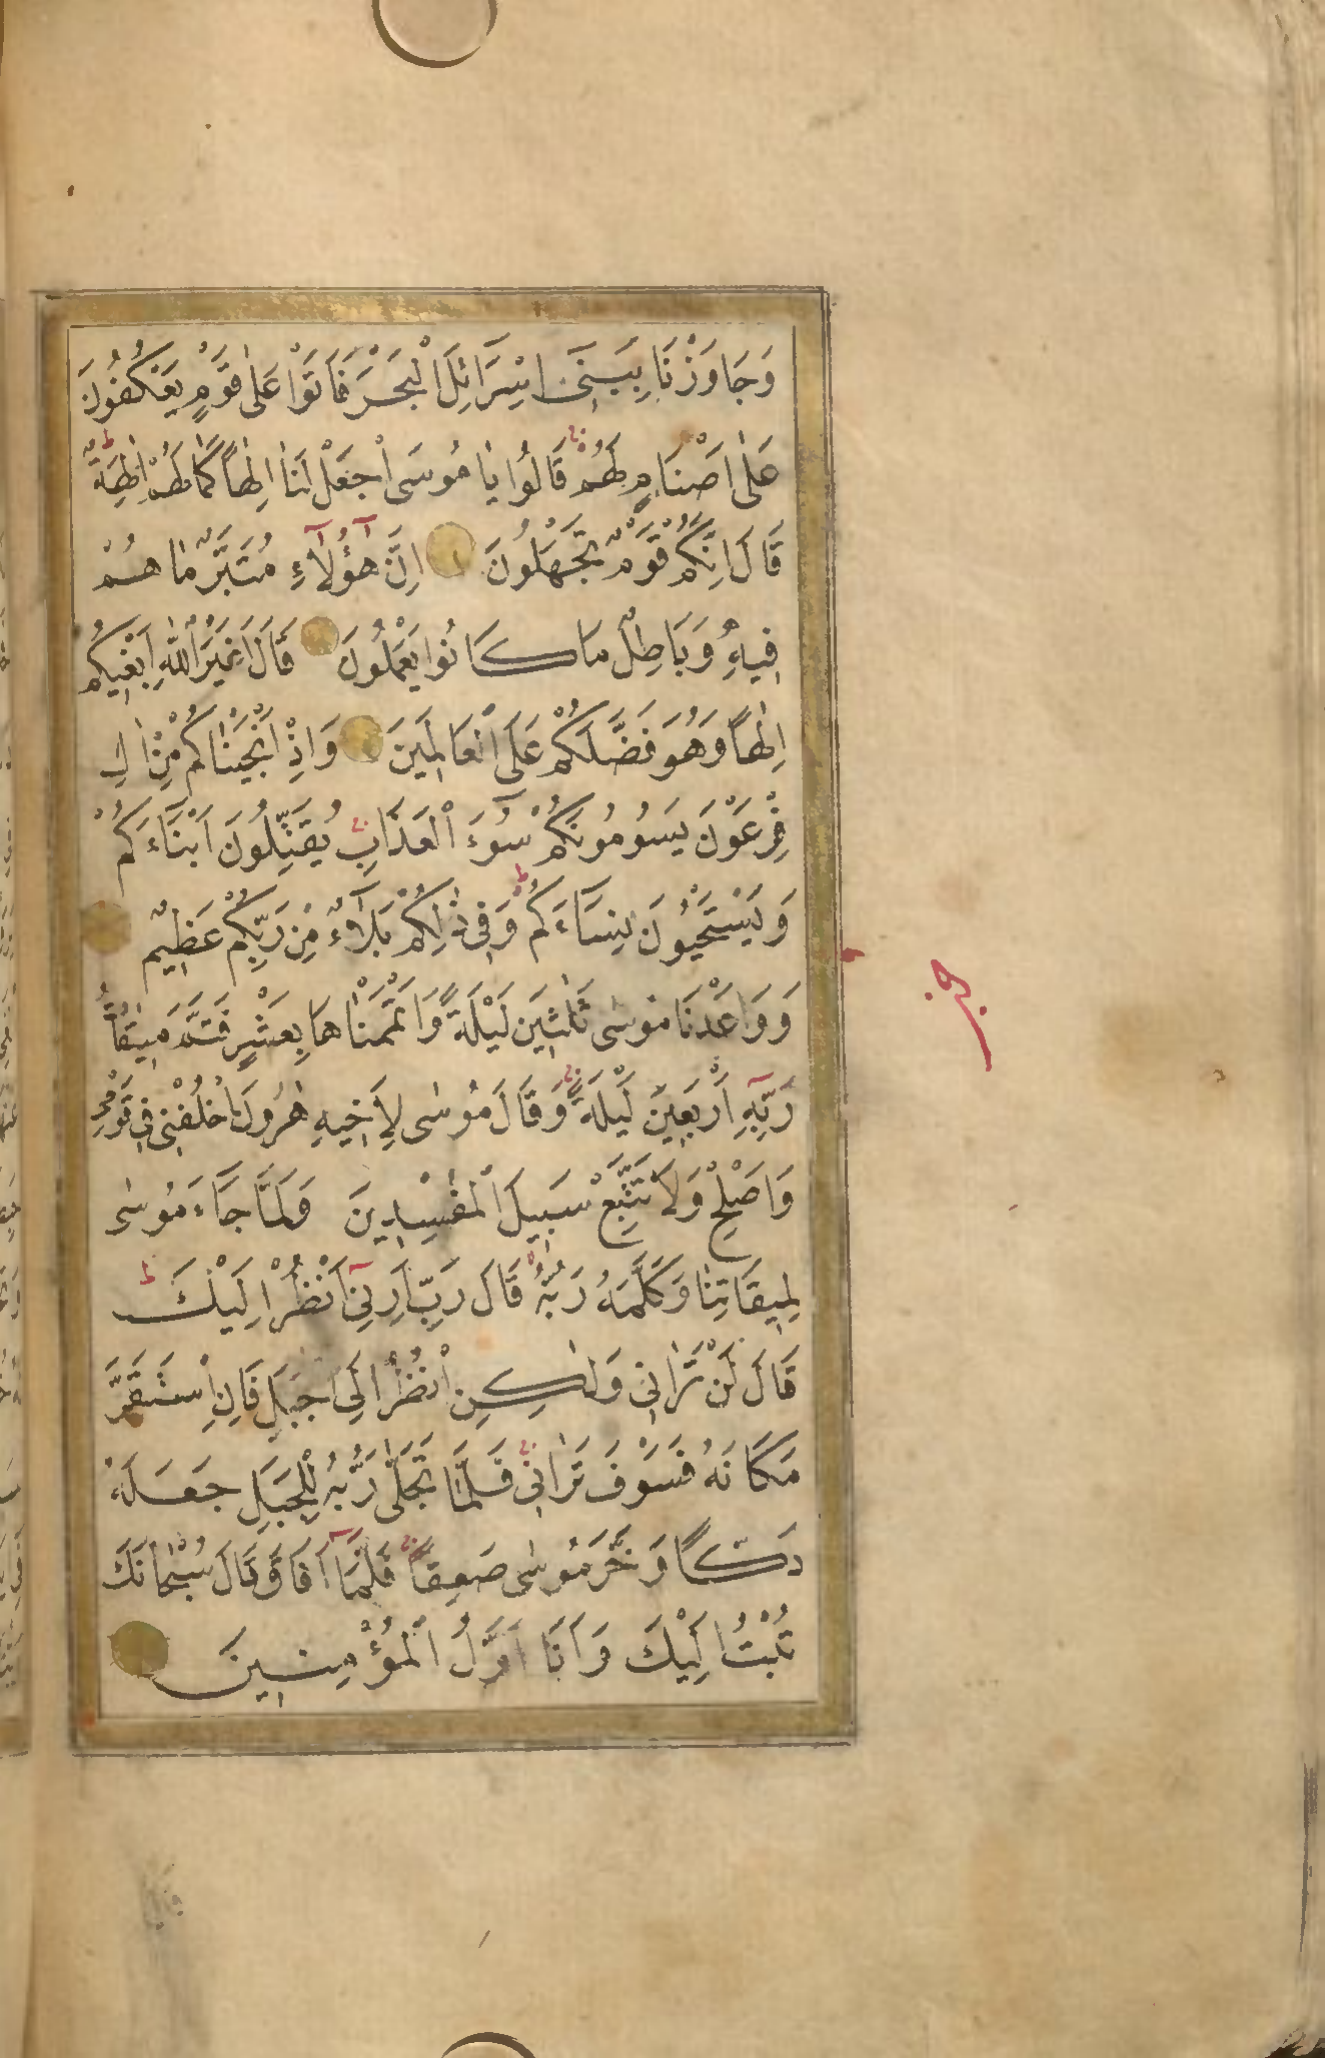 وَجَاوَزْنَا بِبَنِي اِسْرَائِلَ الْبَحْرَ فَاَتَوْا عَلٰى قَوْمٍ يَعْكُفُونَ
عَلٰى اَصْنَامٍ لَهُمْ قَالُوا يَا مُوسَى اجْعَلْ لَنَا اِلٰهًا كَمَا لَهُمْ اٰلِهَةٌ
قَالَ اِنَّكُمْ قَوْمٌ تَجْهَلُونَ اِنَّ هٰؤُلَاءِ مُتَبَّرٌ مَا هُمْ
فِيهِ وَبَاطِلٌ مَا كَانُوا يَعْمَلُونَ قَالَ اَغَيْرَ اللّٰهِ اَبْغِيكُمْ
اِلٰهًا وَهُوَ فَضَّلَكُمْ عَلَى الْعَالَمِينَ وَاِذْ اَنْجَيْنَاكُمْ مِنْ اٰلِ
فِرْعَوْنَ يَسُومُونَكُمْ سُوءَ الْعَذَابِ يُقَتِّلُونَ اَبْنَاءَكُمْ
وَيَسْتَحْيُونَ نِسَاءَكُمْ وَفِي ذٰلِكُمْ بَلَاءٌ مِنْ رَبِّكُمْ عَظِيمٌ
وَوَاعَدْنَا مُوسٰى ثَلٰثِينَ لَيْلَةً وَاَتْمَمْنَاهَا بِعَشْرٍ فَتَمَّ مِيقَاتُ
رَبِّهِ اَرْبَعِينَ لَيْلَةً وَقَالَ مُوسٰى لِاَخِيهِ هٰرُونَ اخْلُفْنِي فِي قَوْمِي
وَاَصْلِحْ وَلَا تَتَّبِعْ سَبِيلَ الْمُفْسِدِينَ وَلَمَّا جَاءَ مُوسٰى
لِمِيقَاتِنَا وَكَلَّمَهُ رَبُّهُ قَالَ رَبِّ اَرِنِي اَنْظُرْ اِلَيْكَ
قَالَ لَنْ تَرٰانِي وَلٰكِنِ انْظُرْ اِلَى الْجَبَلِ فَاِنِ اسْتَقَرَّ
مَكَانَهُ فَسَوْفَ تَرٰانِي فَلَمَّا تَجَلّٰى رَبُّهُ لِلْجَبَلِ جَعَلَهُ
دَكًّا وَخَرَّ مُوسٰى صَعِقًا فَلَمَّا اَفَاقَ قَالَ سُبْحَانَكَ
تُبْتُ اِلَيْكَ وَاَنَا اَوَّلُ الْمُؤْمِنِينَ